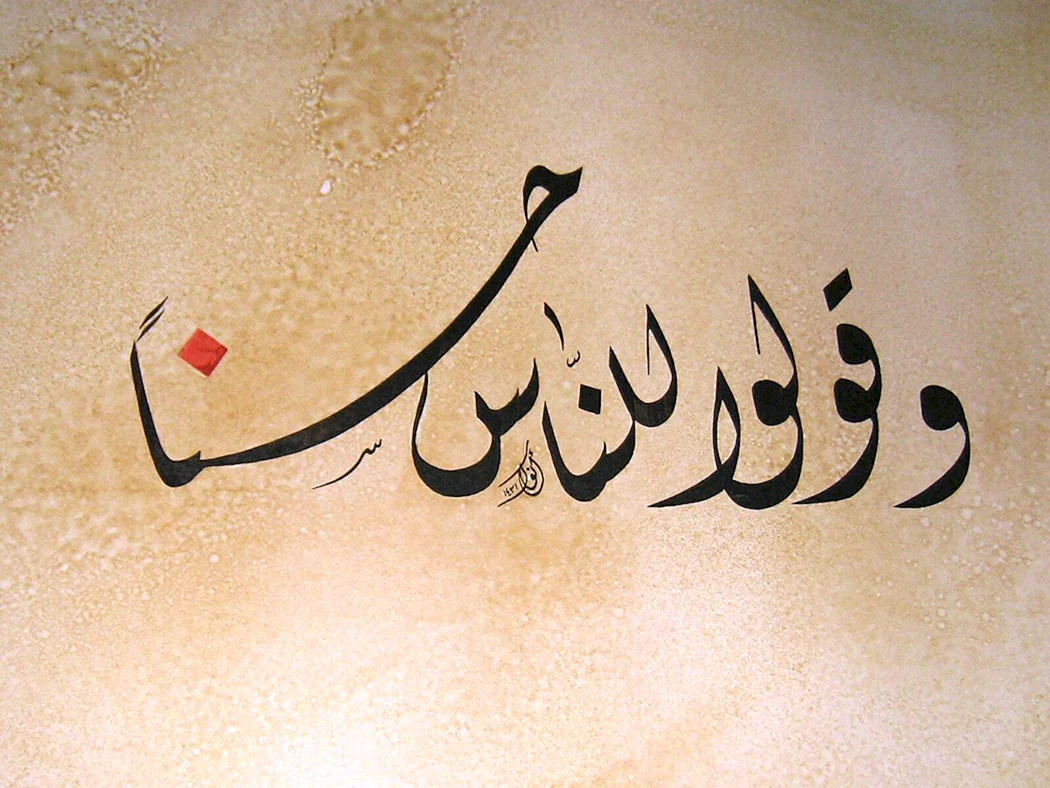 وقولوا للنَّاس حسناً
أنور ١٤٣١